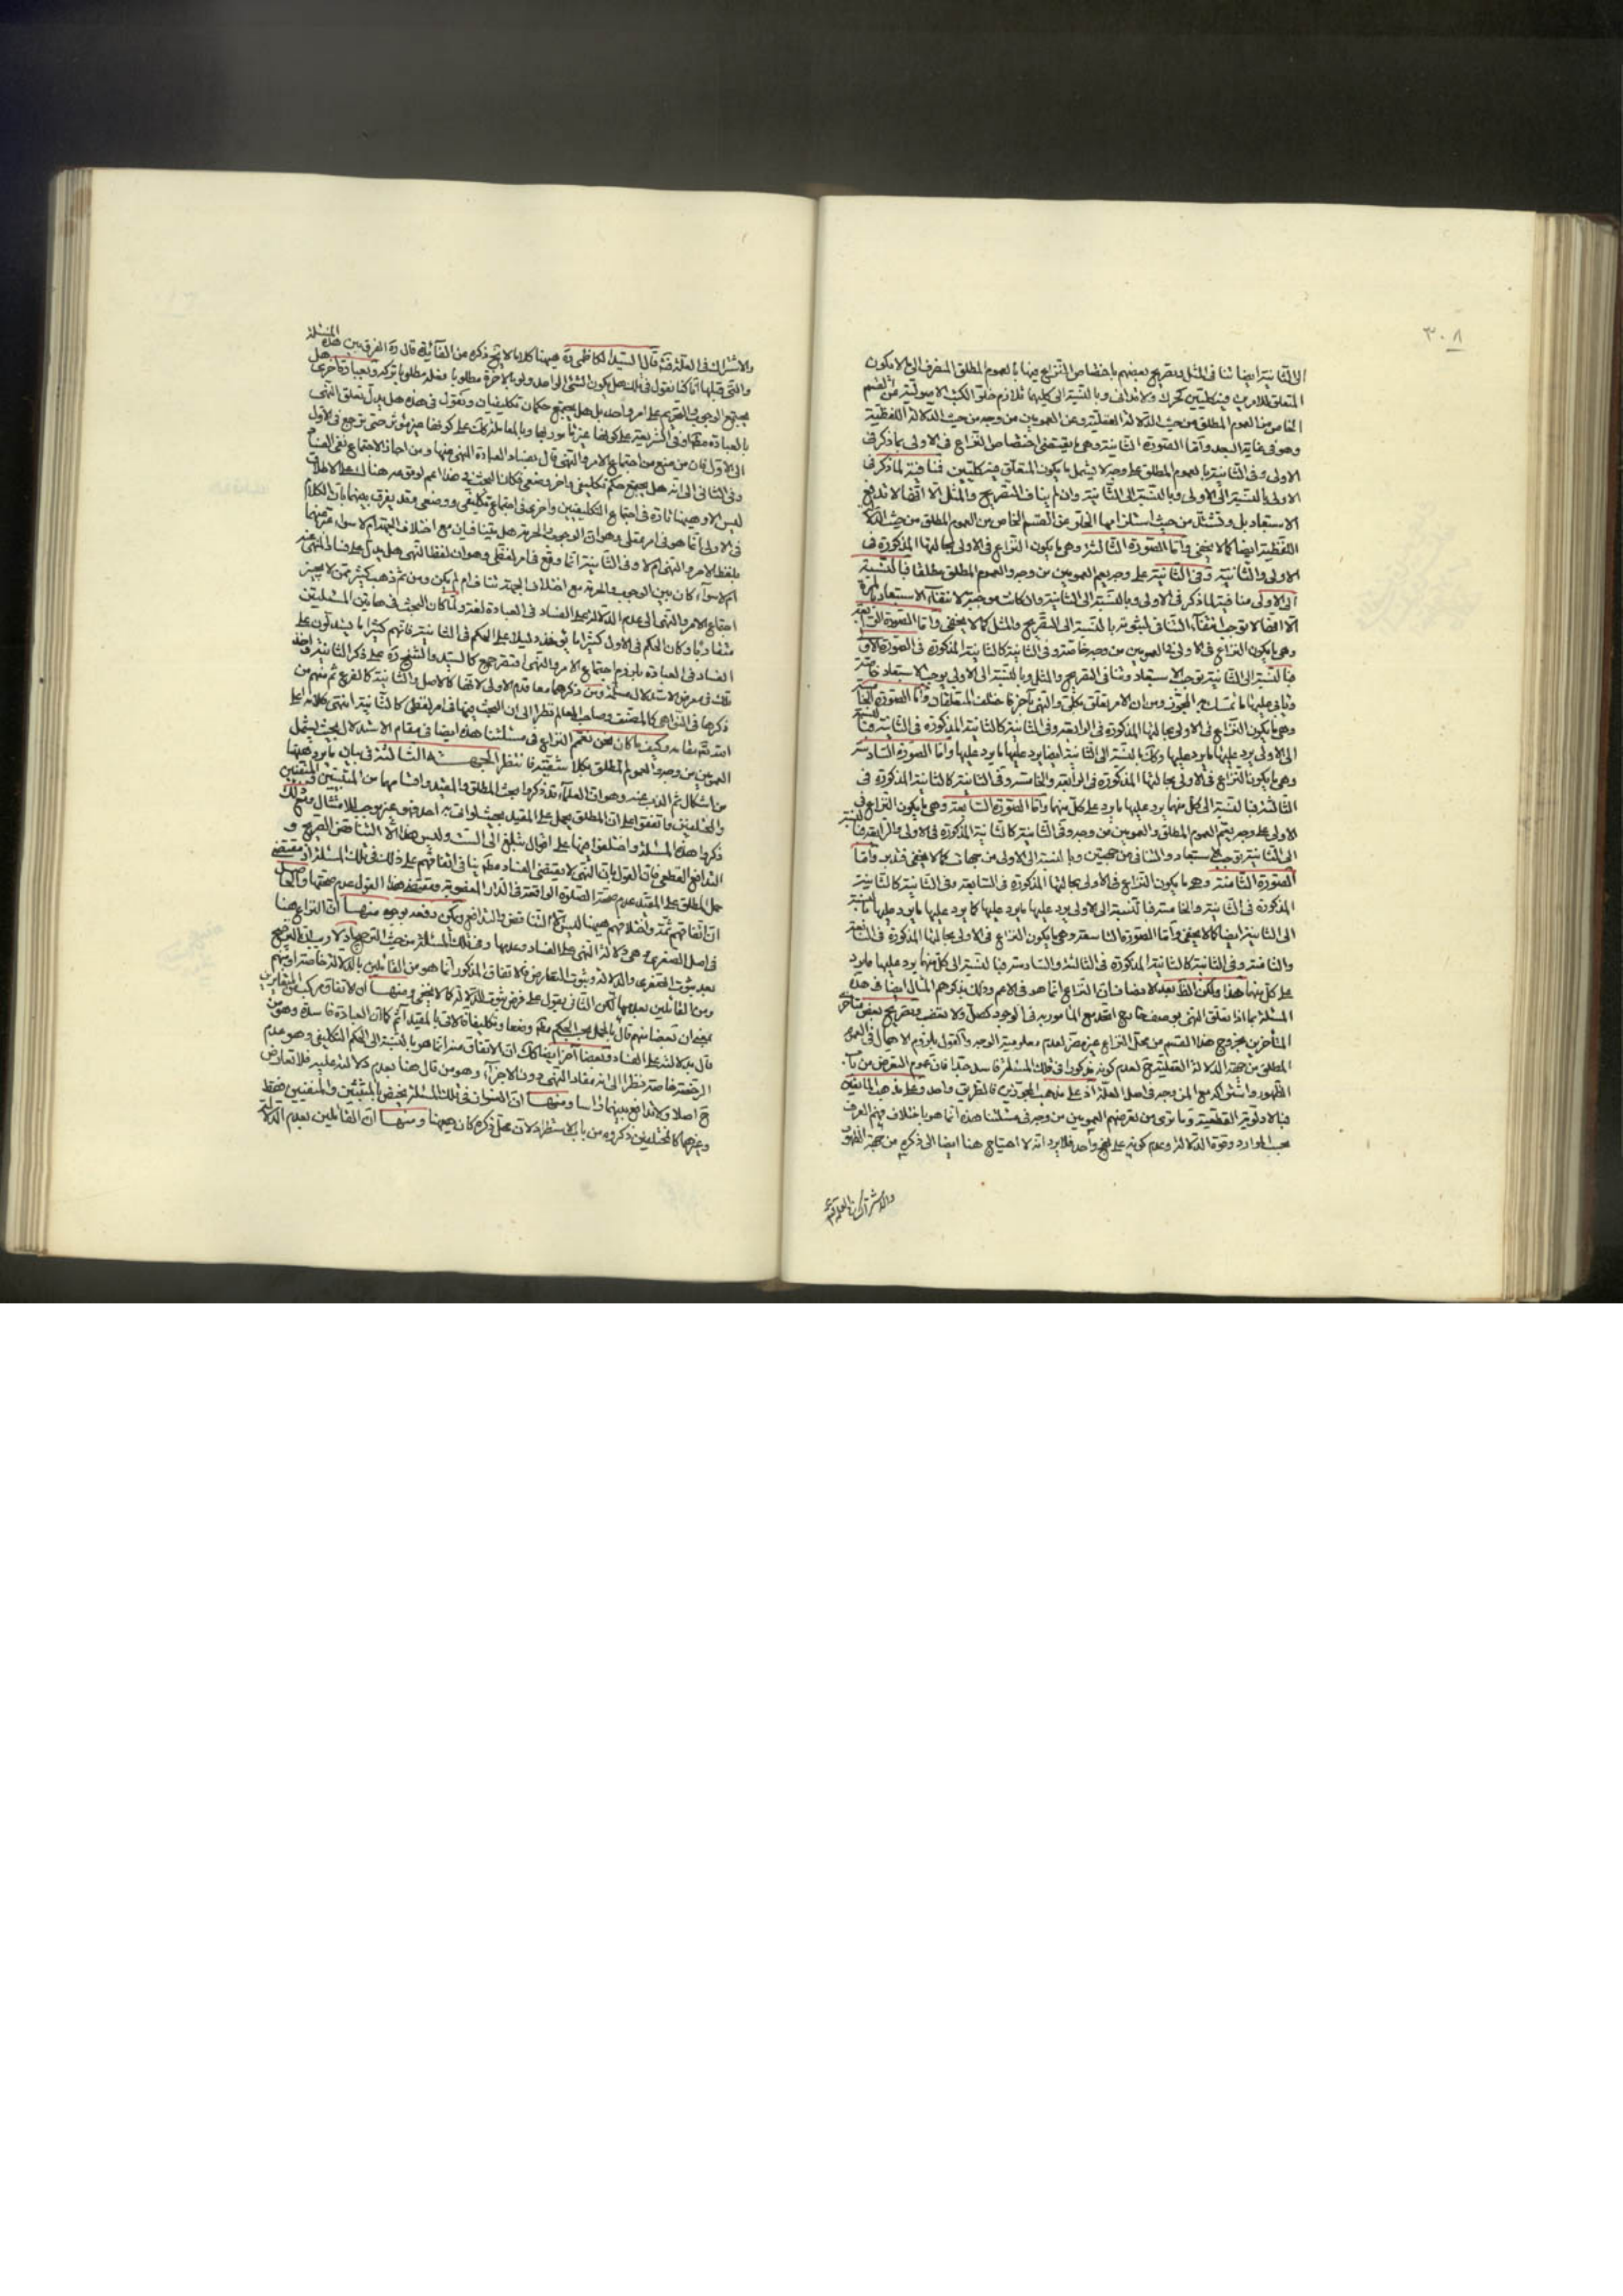 ٣٠٨
الى الثانية ايضا تنافى المثل وتصريح بعضهم باختصاص النزاع فيها بالعموم المطلق المنصرف الى ما لا يكون
المتعلق للامرين فيه كليتين كتحرك ولا تتدانى وبالنسبة الى كليهما تلازم خلو الكتب الاصولية عن القسم
الخاص من العموم المطلق من حيث الدلالة العقلية وعن العمومين من وجه من حيث الدلالة اللفظية
وهو فى غاية البعد وامّا الصورة الثانية وهى ما يقتضى اختصاص النزاع فى الاولى بما ذكر فى
الاولى وفى الثانية بالعموم المطلق على وجه لا يشمل ما يكون المتعلق فيه كليتين فمنافية لما ذكر فى
الاولى بالنسبة الى الاولى وبالنسبة الى الثانية وان لم يناف التصريح والمثل الا انها لا تدفع
الاستبعاد بل من حيث استلزامها الخلو عن القسم الخاص من العموم المطلق من حيث الدلالة
اللفظية ايضا كما لا يخفى وامّا الصورة الثالثة وهى ما يكون النزاع فى الاولى بحالتها المذكورة فى
الاولى والثانية وفى الثانية على وجه يعم العمومين من وجه والعموم المطلق مطلقا فبالنسبة
الى الاولى منافية لما ذكر فى الاولى وبالنسبة الى الثانية وان كانت موجبة لانتفاء الاستبعاد بالمرة
الا انها لا توجب انتفاء التنافى لثبوته بالنسبة الى التصريح والمثل كما لا يخفى وامّا الصورة الرابعة
وهى ما يكون النزاع فى الاولى فى العمومين من وجه خاصة وفى الثانية كالثانية المذكورة فى الصورة الاولى
فبالنسبة الى الثانية توجب الاستبعاد وتنافى التصريح والمثل وبالنسبة الى الاولى يوجب الاستبعاد خاصة
وهى ما يكون النزاع فى الاولى بحالتها المذكورة فى الرابعة وفى الثانية كالثانية المذكورة فى الثانية فبالنسبة
الى الاولى يرد عليها ما يرد عليها وكذلك بالنسبة الى الثانية ايضا يرد عليها ما يرد عليها وامّا الصورة السادسة
وهى ما يكون النزاع فى الاولى بحالتها المذكورة فى الرابعة والخامسة وفى الثانية كالثانية المذكورة فى
الثالثة فبالنسبة الى كل منهما يرد عليها ما يرد على كل منهما وامّا الصورة السابعة وهى ما يكون النزاع فى
الاولى على وجه يعم العموم المطلق والعمومين من وجه وفى الثانية كالثانية المذكورة فى الاولى والرابعة فبالنسبة
الى الثانية توجب الاستبعاد والتنافى من جهتين وبالنسبة الى الاولى من جهات كما لا يخفى فتدبر وامّا
الصورة الثامنة وهو ما يكون النزاع فى الاولى بحالتها المذكورة فى السابعة وفى الثانية كالثانية
المذكورة فى الثانية والخامسة فبالنسبة الى الاولى يرد عليها ما يرد عليها كما يرد عليها ما يرد عليها بالنسبة
الى الثانية ايضا كما لا يخفى وامّا الصورة التاسعة وهى ما يكون النزاع فى الاولى بحالتها المذكورة فى السابعة
والثامنة وفى الثانية كالثانية المذكورة فى الثالثة والسادسة فبالنسبة الى كل منهما يرد عليها ما يرد
على كل منهما هذا ولكن الظ بعد الانصاف ان النزاع انما هو فى الاعم وذلك بذكرهم المثال ايضا فى هذه
المتأخرين بخروج هذا القسم من محل النزاع غير مضر لعدم معلومية الوجه والقول بلزوم الاهمال فى العموم
المطلق من جهة الدلالة العقلية ح لعدم كونه مذكورا فى تلك المسئلة فاسد جدا فان عموم التعرض من باب
الظهور واشتراكه مع المن وجه فى اصل العلة اذ على مذهب المجوزين فالطريق واحد وعلى مذهب المانعين
فبالاولوية القطعية وما ترى من تعرضهم العمومين من وجه فى مسئلتنا هذه انما هو باختلاف فهم العرف
بحسب الموارد وقوة الدلالة وعدم كونه على نهج واحد فلا يرد انه لا احتياج هنا ايضا الى ذكره من جهة الظهور
والاشتراك فى العلة فتدبر
والاشتراك فى العلة فتدبر قال السيد الكاظمى ره هيهنا كلاما لا يخ ذكره من الفائدة قال ره الفرق بين هذه المسئلة
والتى قبلها انا كنا نقول فى تلك هل يكون الشئ الواحد ولو بالاخرة مطلوبا فعله مطلوبا تركه وبعبارة اخرى هل
يجتمع الوجوب والتحريم على امر واحد بل هل يجتمع حكمان تكليفيان ونقول فى هذه هل يدل تعلق النهى
بالعبادة مطلقا وفى الشريعة على كونها غير مأمور بها وبالمعاملة كذلك على كونها غير مؤثرة حتى ترجع فى الاول
الى الاول فان من منع من اجتماع الامر والنهى قال بفساد العبادة المنهى عنها ومن اجاز الاجتماع نفى الفساد
وفى الثانى الى انه هل يجتمع حكم تكليفى واخر وضعى فكان البحث فى هذا اعم لوقوعه هنالك على الاطلاق
ليس الا وهيهنا تارة فى اجتماع التكليفيين واخرى فى اجتماع تكليفى ووضعى وقد يفرق بينهما بان الكلام
فى الاولى انما هو فى امر عقلى وهو ان الوجوب والحرمة هل يتنافيان مع اختلاف الجهة ام لا سواء عبر عنهما
بلفظ الامر والنهى ام لا وفى الثانية انما وقع فى امر لفظى وهو ان لفظ النهى هل يدل على فساد المنهى عنه
ام لا سواء كان بين الوجوب والحرمة مع اختلاف الجهة تناف ام لم يكن ومن ثم ذهب كثير ممن لا يجيز
اجتماع الامر والنهى الى عدم الدلالة على الفساد فى العبادة لغة ولما كان البحث فى هاتين المسئلتين
متقاربا وكان الحكم فى الاول كثيرا ما يؤخذ دليلا على الحكم فى الثانية فانهم كثيرا ما يستدلون على
الفساد فى العبادة بلزوم اجتماع الامر والنهى اقتصر جمع كالسيد والشيخ ره على ذكر الثانية واخذ
تلك فى معرض الاستدلال مسلمة ومن ذكرهما معا قدم الاولى لانها كالاصل والثانية كالفرع ثم منهم من
ذكرها فى النواهى كالمصنف وصاحب المعالم نظرا الى ان البحث فيها فى امر لفظى كالثانية انتهى كلامه اعلى
الله مقامه وكيف ما كان نحن نعمم النزاع فى مسئلتنا هذه ايضا فى مقام الاستدلال بحيث يشمل
العمومين من وجه والعموم المطلق بكلا شقيه فانتظر الجهة الثالثة فى بيان ما يرد هيهنا
من اشكال ثم الذب عنه وهو ان العلماء قد ذكروا مبحث المطلق والمقيد واقسامهما من المثبتين والمنفيين
والمختلفين واتفقوا على ان المطلق يحمل على المقيد بحيث لو اتى به احد فهو غير موجب للامتثال ومع ذلك
ذكروا هذه المسئلة واختلفوا فيها على اقوال تبلغ الى الست وليس هذا الا التناقض الصريح و
التدافع القطعى فان القول بان النهى لا يقتضى الفساد مطلقا ينافى اتفاقهم على ذلك فى تلك المسئلة اذ مقتضى
حمل المطلق على المقيد عدم صحة الصلوة الواقعة فى الدار المغصوبة ومقتضى هذا القول عدم صحتها والحاصل
ان اتفاقهم ثمة واختلافهم هيهنا ليس الا التناقض والتدافع ويمكن دفعه بوجوه منها ان النزاع هنا
فى اصل الصغرى وهى دلالة النهى على الفساد وعدمها وفى تلك المسئلة من حيث الترجيح اذ لا ريب ان الترجيح
بعد ثبوت الصغرى والدلالة وثبوت التعارض فالاتفاق المذكور انما هو من القائلين بالدلالة خاصة او منهم
ومن القائلين بعدمها لكن الثانى يقول على فرض ثبوت الدلالة كما لا يخفى ومنها ان الاتفاق مركب من المتغايرين
بمعنى ان بعضا منهم قال بالحمل بحسب الحكم مطلقا وضعا وتكليفا فالاتى بالمقيد آثم كما ان العبادة فاسدة وهو من
قال بدلالته على الفساد وبعضا اخر ايضا كذلك الا ان الاتفاق منه انما هو بالنسبة الى الحكم التكليفى وهو عدم
الرخصة خاصة نظرا الى انه مفاد النهى دون الاجزاء وهو من قال هنا بعدم دلالته عليه فلا تعارض
ح اصلا ولا تدافع بينهما رأسا ومنها ان العنوان فى تلك المسئلة يختص بالمثبتين والمنفيين فقط
وغيرهما كالمختلفين ذكروه من باب الاستطراد لان محل ذكره كان هيهنا ومنها ان القائلين بعدم الدلالة